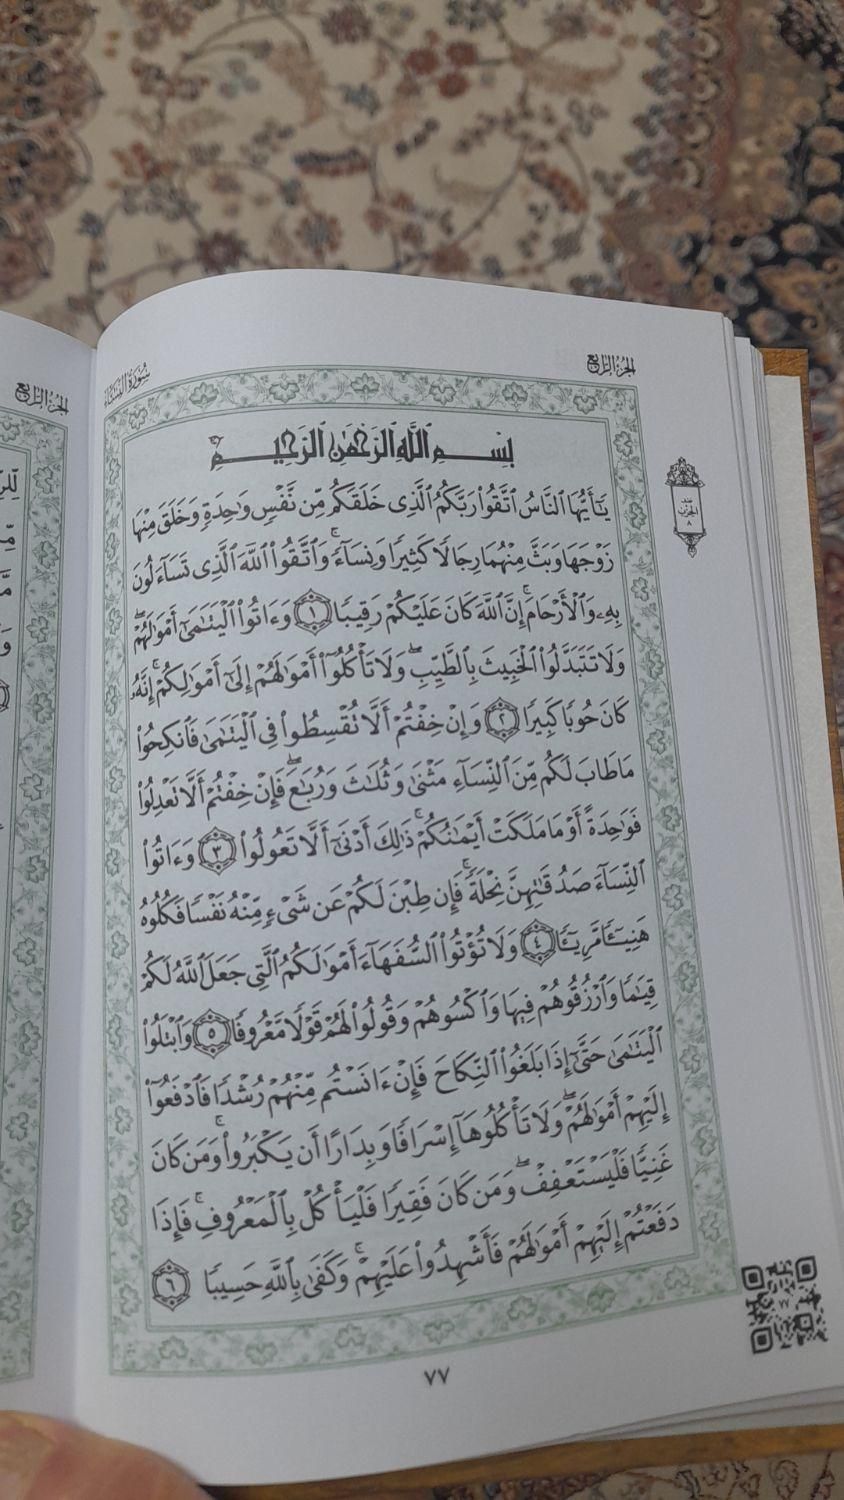 الجزء الرابع
سورة النساء
بِسْمِ ٱللَّهِ ٱلرَّحْمَٰنِ ٱلرَّحِيمِ
يَٰٓأَيُّهَا ٱلنَّاسُ ٱتَّقُوا۟ رَبَّكُمُ ٱلَّذِى خَلَقَكُم مِّن نَّفْسٍ وَٰحِدَةٍ وَخَلَقَ مِنْهَا
زَوْجَهَا وَبَثَّ مِنْهُمَا رِجَالًا كَثِيرًا وَنِسَآءً ۚ وَٱتَّقُوا۟ ٱللَّهَ ٱلَّذِى تَسَآءَلُونَ
بِهِۦ وَٱلْأَرْحَامَ ۚ إِنَّ ٱللَّهَ كَانَ عَلَيْكُمْ رَقِيبًا ١ وَءَاتُوا۟ ٱلْيَتَٰمَىٰٓ أَمْوَٰلَهُمْ ۖ
وَلَا تَتَبَدَّلُوا۟ ٱلْخَبِيثَ بِٱلطَّيِّبِ ۖ وَلَا تَأْكُلُوٓا۟ أَمْوَٰلَهُمْ إِلَىٰٓ أَمْوَٰلِكُمْ ۚ إِنَّهُۥ
كَانَ حُوبًا كَبِيرًا ٢ وَإِنْ خِفْتُمْ أَلَّا تُقْسِطُوا۟ فِى ٱلْيَتَٰمَىٰ فَٱنكِحُوا۟
مَا طَابَ لَكُم مِّنَ ٱلنِّسَآءِ مَثْنَىٰ وَثُلَٰثَ وَرُبَٰعَ ۖ فَإِنْ خِفْتُمْ أَلَّا تَعْدِلُوا۟
فَوَٰحِدَةً أَوْ مَا مَلَكَتْ أَيْمَٰنُكُمْ ۚ ذَٰلِكَ أَدْنَىٰٓ أَلَّا تَعُولُوا۟ ٣ وَءَاتُوا۟
ٱلنِّسَآءَ صَدُقَٰتِهِنَّ نِحْلَةً ۚ فَإِن طِبْنَ لَكُمْ عَن شَىْءٍ مِّنْهُ نَفْسًا فَكُلُوهُ
هَنِيٓـًٔا مَّرِيٓـًٔا ٤ وَلَا تُؤْتُوا۟ ٱلسُّفَهَآءَ أَمْوَٰلَكُمُ ٱلَّتِى جَعَلَ ٱللَّهُ لَكُمْ
قِيَٰمًا وَٱرْزُقُوهُمْ فِيهَا وَٱكْسُوهُمْ وَقُولُوا۟ لَهُمْ قَوْلًا مَّعْرُوفًا ٥ وَٱبْتَلُوا۟
ٱلْيَتَٰمَىٰ حَتَّىٰٓ إِذَا بَلَغُوا۟ ٱلنِّكَاحَ فَإِنْ ءَانَسْتُم مِّنْهُمْ رُشْدًا فَٱدْفَعُوٓا۟
إِلَيْهِمْ أَمْوَٰلَهُمْ ۖ وَلَا تَأْكُلُوهَآ إِسْرَافًا وَبِدَارًا أَن يَكْبَرُوا۟ ۚ وَمَن كَانَ
غَنِيًّا فَلْيَسْتَعْفِفْ ۖ وَمَن كَانَ فَقِيرًا فَلْيَأْكُلْ بِٱلْمَعْرُوفِ ۚ فَإِذَا
دَفَعْتُمْ إِلَيْهِمْ أَمْوَٰلَهُمْ فَأَشْهِدُوا۟ عَلَيْهِمْ ۚ وَكَفَىٰ بِٱللَّهِ حَسِيبًا ٦
٧٧
الجزء الرابع